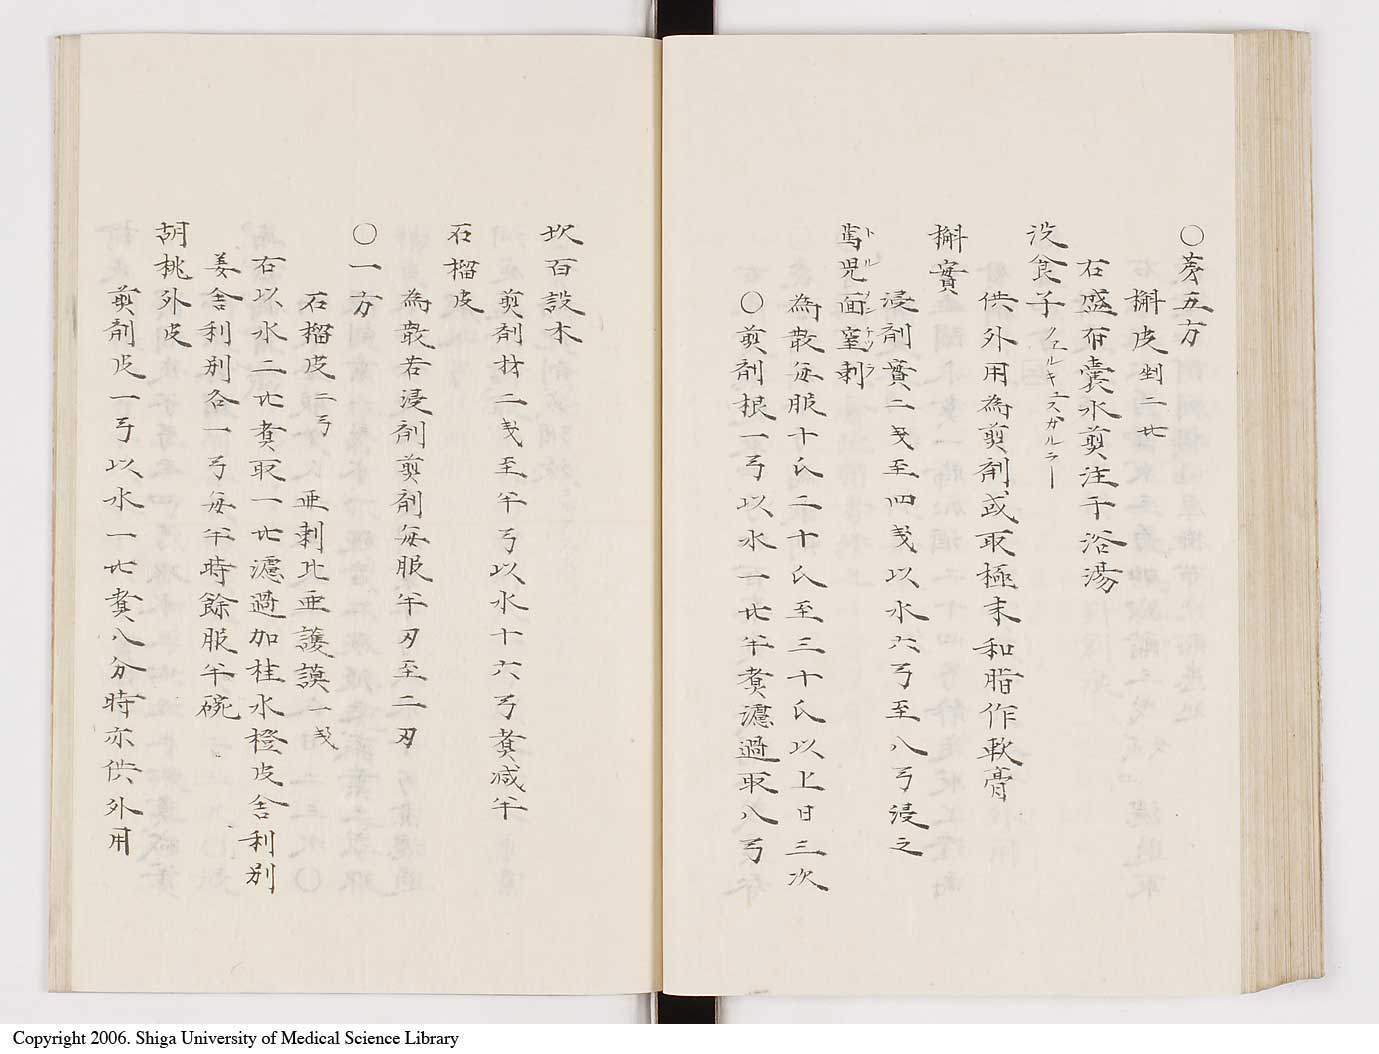 〇第五方
槲皮剉二㪷
右盛布嚢水煎注于浴湯
没食子ノエルキュスガルラー
供外用為煎剤或取極末和脂作軟膏
槲實
浸剤實二戔至四戔以水六弓至八弓浸之
篤児面窒剌トルメンチツラ
為散毎服十氏二十氏至三十氏以上日三次
〇煎剤根一弓以水一㪷半煑濾過取八弓
坎百設木
煎剤材二戔至半弓以水十六弓煑减半
石榴皮
為散若浸剤煎剤毎服半刃至二刃
〇一方
石榴皮二弓 亜剌比亜護謨一戔
右以水二㪷煑取一㪷濾過加桂水橙皮舎利別
姜舎利別各一弓毎半時餘服半碗
胡桃外皮
煎剤皮一弓以水一㪷煑八分時亦供外用
Copyright 2006. Shiga University of Medical Science Library